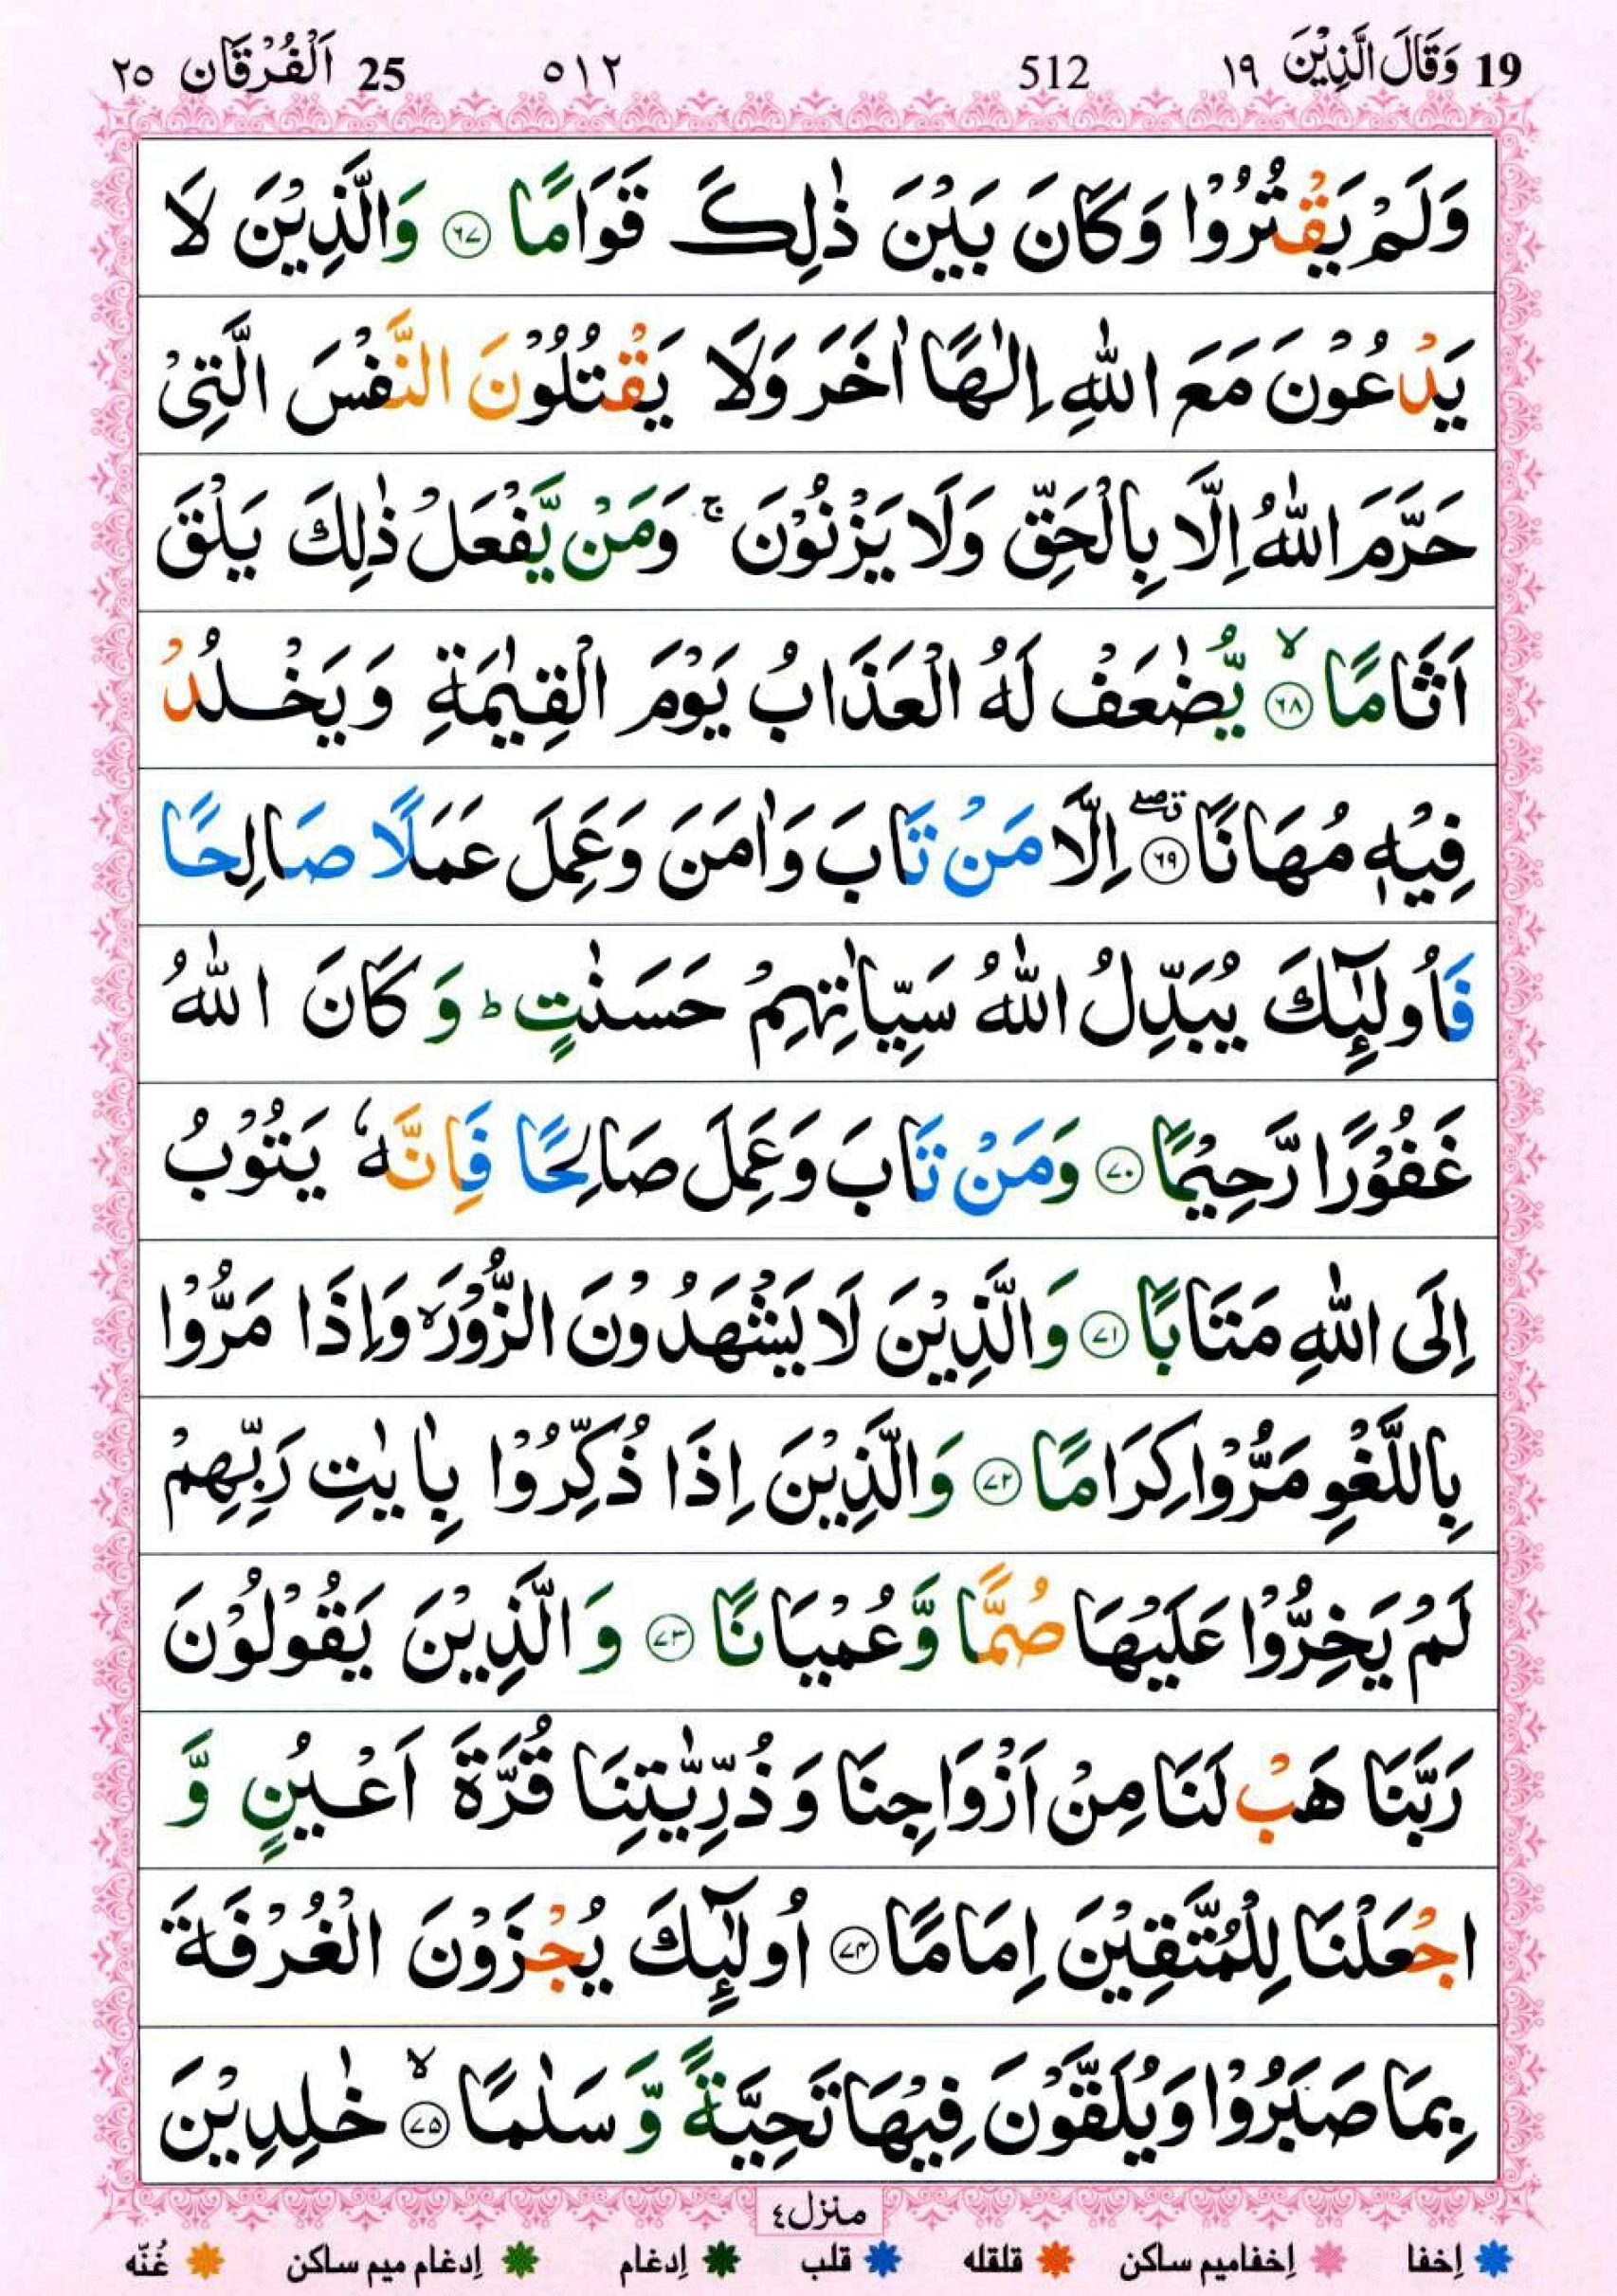 19 وَقَالَ الَّذِيْنَ ١٩ 512 ٥١٢ 25 اَلْفُرْقَان ٢٥
وَلَمْ يَقْتُرُوْا وَكَانَ بَيْنَ ذٰلِكَ قَوَامًا ۝٦٧ وَالَّذِيْنَ لَا
يَدْعُوْنَ مَعَ اللّٰهِ اِلٰهًا اٰخَرَ وَلَا يَقْتُلُوْنَ النَّفْسَ الَّتِىْ
حَرَّمَ اللّٰهُ اِلَّا بِالْحَقِّ وَلَا يَزْنُوْنَ ۚ وَمَنْ يَّفْعَلْ ذٰلِكَ يَلْقَ
اَثَامًا ۙ۝٦٨ يُّضٰعَفْ لَهُ الْعَذَابُ يَوْمَ الْقِيٰمَةِ وَيَخْلُدْ
فِيْهٖ مُهَانًا ۝٦٩ۗۖ اِلَّا مَنْ تَابَ وَاٰمَنَ وَعَمِلَ عَمَلًا صَالِحًا
فَاُولٰٓئِكَ يُبَدِّلُ اللّٰهُ سَيِّاٰتِهِمْ حَسَنٰتٍ ؕ وَكَانَ اللّٰهُ
غَفُوْرًا رَّحِيْمًا ۝٧٠ وَمَنْ تَابَ وَعَمِلَ صَالِحًا فَاِنَّهٗ يَتُوْبُ
اِلَى اللّٰهِ مَتَابًا ۝٧١ وَالَّذِيْنَ لَا يَشْهَدُوْنَ الزُّوْرَ ۙ وَاِذَا مَرُّوْا
بِاللَّغْوِ مَرُّوْا كِرَامًا ۝٧٢ وَالَّذِيْنَ اِذَا ذُكِّرُوْا بِاٰيٰتِ رَبِّهِمْ
لَمْ يَخِرُّوْا عَلَيْهَا صُمًّا وَّعُمْيَانًا ۝٧٣ وَالَّذِيْنَ يَقُوْلُوْنَ
رَبَّنَا هَبْ لَنَا مِنْ اَزْوَاجِنَا وَذُرِّيّٰتِنَا قُرَّةَ اَعْيُنٍ وَّ
اجْعَلْنَا لِلْمُتَّقِيْنَ اِمَامًا ۝٧٤ اُولٰٓئِكَ يُجْزَوْنَ الْغُرْفَةَ
بِمَا صَبَرُوْا وَيُلَقَّوْنَ فِيْهَا تَحِيَّةً وَّسَلٰمًا ۙ۝٧٥ خٰلِدِيْنَ
منزل ٤
إخفا إخفامیم ساکن قلقله قلب إدغام إدغام میم ساکن غُنّه